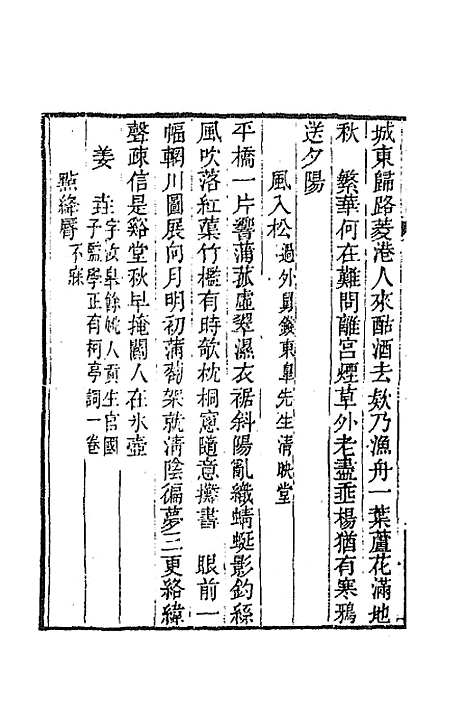 城東歸路菱港人來酤酒去欸乃漁舟一葉蘆花滿地
秋　繁華何在難問離宮煙草外老盡垂楊猶有寒鴉
送夕陽
風入松過外舅錢東臯先生清映堂
平橋一片響蒲菰虛翠濕衣裾斜陽亂織蜻蜓影釣絲
風吹落紅蕖竹檻有時欹枕桐窓隨意攤書　眼前一
幅輞川圖展向月明初蒲萄架就清陰徧夢三更絡緯
聲疎信是谿堂秋早掩關人在氷壺
姜垚字汝臯餘姚人貢生官國
子監學正有柯亭詞一卷
點絳脣不寐